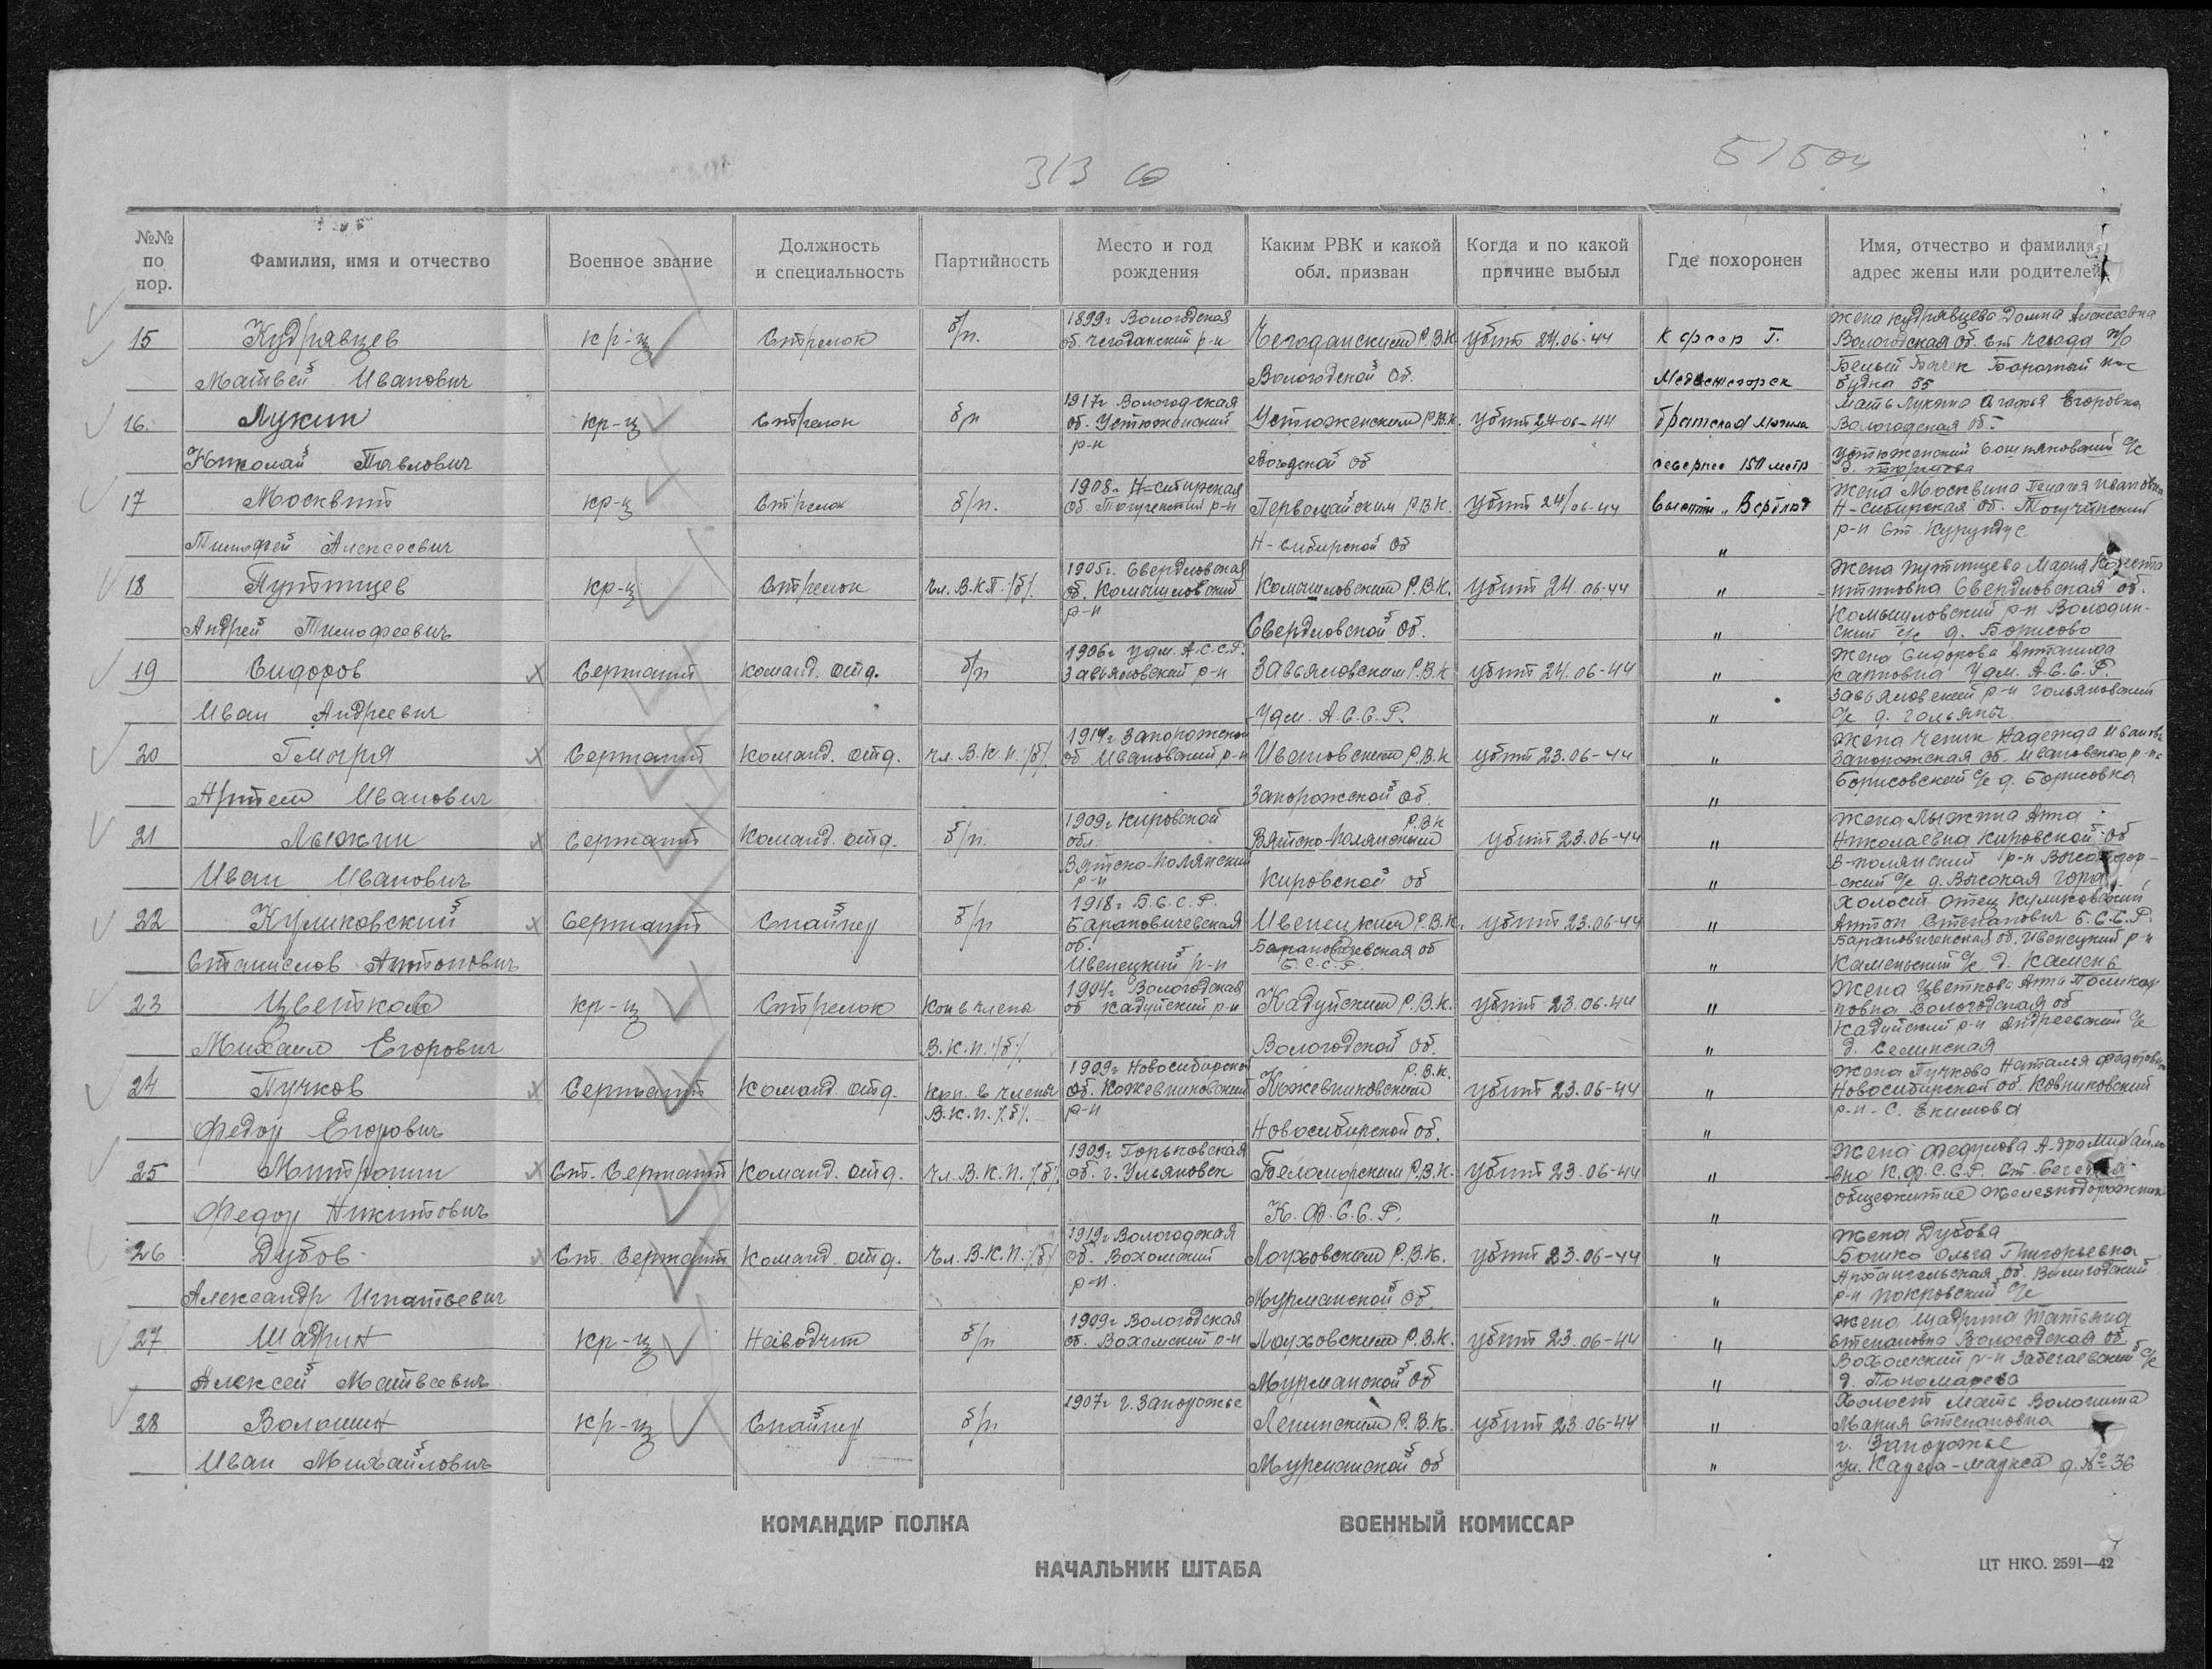 313 сд
51504
№№ по пор.
Фамилия, имя и отчество
Военное звание
Должность и специальность
Партийность
Место и год рождения
Каким РВК и какой обл. призван
Когда и по какой причине выбыл
Где похоронен
Имя, отчество и фамилия, адрес жены или родителей
15 Кудрявцев кр-ц Стрелок б/п. 1899г Вологодская об. Чегодакский р-н Чегоданским Р.В.К убит 24.06-44 К фоор Г. жена Кудрявцева Домна Алексеевна
Матвей Иванович Вологодской Об. Медвежегорск Вологодская Об. ст Чегода п/о Белый будка 55
16. Лукин кр-ц Стрелок б/п 1917г Вологодская об. Устюженский р-н Устюженским Р.В.К. убит 24-06-44 братская могила Мать Лукина Агафья Егоровна
Николай Павлович об севернее 150 метр Вологодская об- Устюженский с/с д.
17 Москвин кр-ц Стрелок б/п. 1908г Н-сибирская Об. Тогученский р-н Первомайским Р.В.К. убит 24/06-44 высоты „Верблюд Жена Москвина Пелагея Ивановна
Тимофей Алексеевич Н-сибирской Об " Н-сибирская Об. Тогучинский р-н ст Курундус
18 Путинцев кр-ц Стрелок чл. В.К.П./б/. 1905г. Свердловская об. Комышловский р-н Комышловским Р.В.К. убит 24.06-44 " Жена Путинцева Мария
Андрей Тимофеевич Свердловской Об. " Свердловская об. Комышловский р-н Володинский с/с д. Борисово
19 Сидоров Сержант Команд. отд. б/п 1906г Удм. А.С.С.Р. Завьяловский р-н Завьяловским Р.В.К убит 24.06-44 " Жена Сидорова
Иван Андреевич Удм. А.С.С.Р. " Карповна Удм. А.С.С.Р. Завьяловский р-н гольянский с/с д. гольяны
20 Гмыря Сержант Команд. отд. чл. В.К.П./б/. 1914г Запорожской об Ивановский р-н Ивановским Р.В.К убит 23.06-44 " Жена Чепик Надежда Ивановн
Артем Иванович Запорожской Об. " Запорожская Об. Ивановского р-на Борисовский с/с д. Борисовка
21 Лыжин Сержант Команд. отд. б/п. 1909г Кировской обл. Вятско-Полянский р-н Вятско-Полянским Р.В.К убит 23.06-44 " Жена Лыжина Анна
Иван Иванович Кировской Об " Николаевна Кировской Об В-полянский р-н -ский с/с д. Высокая гора
22 Куликовский Сержант Снайпер б/п 1918г Б.С.С.Р. Барановичевская об. Ивенецкий р-н Ивенецким Р.В.К. убит 23.06-44 " Холост отец Куликовский
Станислов Антонович Барановичевская об Б.С.С.Р. " Антон Степанович Б.С.С.Р. Барановиченская об. Ивенецкий р-н Каменьский с/с д. Камень
23 Цветков кр-ц Стрелок Кан в члены 1904г Вологодская об Кадуйский р-н Кадуйским Р.В.К. убит 23.06-44 " Жена Цветкова Анна Поликар
Михаил Егорович В.К.П./б/. Вологодской об. " повна Вологодская об Кадуйский р-н Андреевский с/с д. Селинская
24 Пучков Сержант Команд. отд. Кан. в члены В.К.П./б/. 1909г Новосибирской Об. Кожевниковский р-н Кожевниковским Р.В.К. убит 23.06-44 " Жена Пучкова Наталья Федоровн
Федор Егорович Новосибирской об. " Новосибирской об. р-н - С. Екимова
25 Митронин Ст. Сержант Команд. отд. Чл. В.К.П./б/. 1909г Горьковская Об. г. Ульяновск Беломорским Р.В.К. убит 23.06-44 " Жена Федулова А-дра Михайло
Федор Никитович К.Ф.С.С.Р. " вна К.Ф.С.С.Р. ст. общежитие железнодорожник
26 Дубов Ст. Сержант Команд. отд. Чл. В.К.П./б/ 1919г Вологодская Об. Вохомский р-н. Лоуховским Р.В.К. убит 23.06-44 " Жена Дубова
Александр Игнатьевич Мурманской Об. " Бошко Ольга Григорьевна Архангельская об. р-н Покровский с/с
27 Шадрин кр-ц Наводчик б/п 1909г Вологодская об. Вохомский р-н Лоуховским Р.В.К. убит 23.06-44 " Жена Шадрина Татьяна
Алексей Матвеевич Мурманской Об " Степановна Вологодская об Вохомский р-н с/с д. Пономарево
28 Волошин кр-ц Снайпер б/п 1907г г. Запорожье Ленинским Р.В.К. убит 23.06-44 " Холост Мать Волошина
Иван Михайлович Мурманской Об " Мария Степановна г. Запорожье ул. Карла-Маркса д. № 36
КОМАНДИР ПОЛКА
ВОЕННЫЙ КОМИССАР
НАЧАЛЬНИК ШТАБА
ЦТ НКО. 2591—42